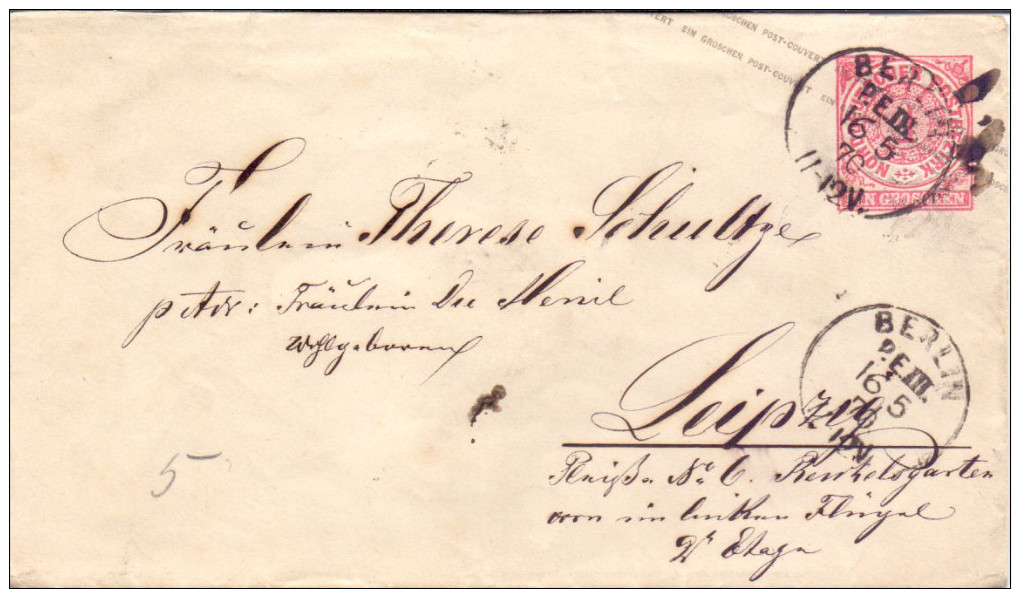 EIN GROSCHEN POST-COUVERT
EIN GROSCHEN POST-COUVERT
NORDD. POSTBEZIRK
EIN GROSCHEN
BERLIN
P.E.III.
16 5
70
11-12V.
Fräulein Therese Schultze
p Adr: Fräulein Du Menil
Wohlgeboren
BERLIN
P.E.III.
16 5
70
Leipzig
Pleiße No 6. Reichelsgarten
vorn im linken Flügel
2te Etage
5